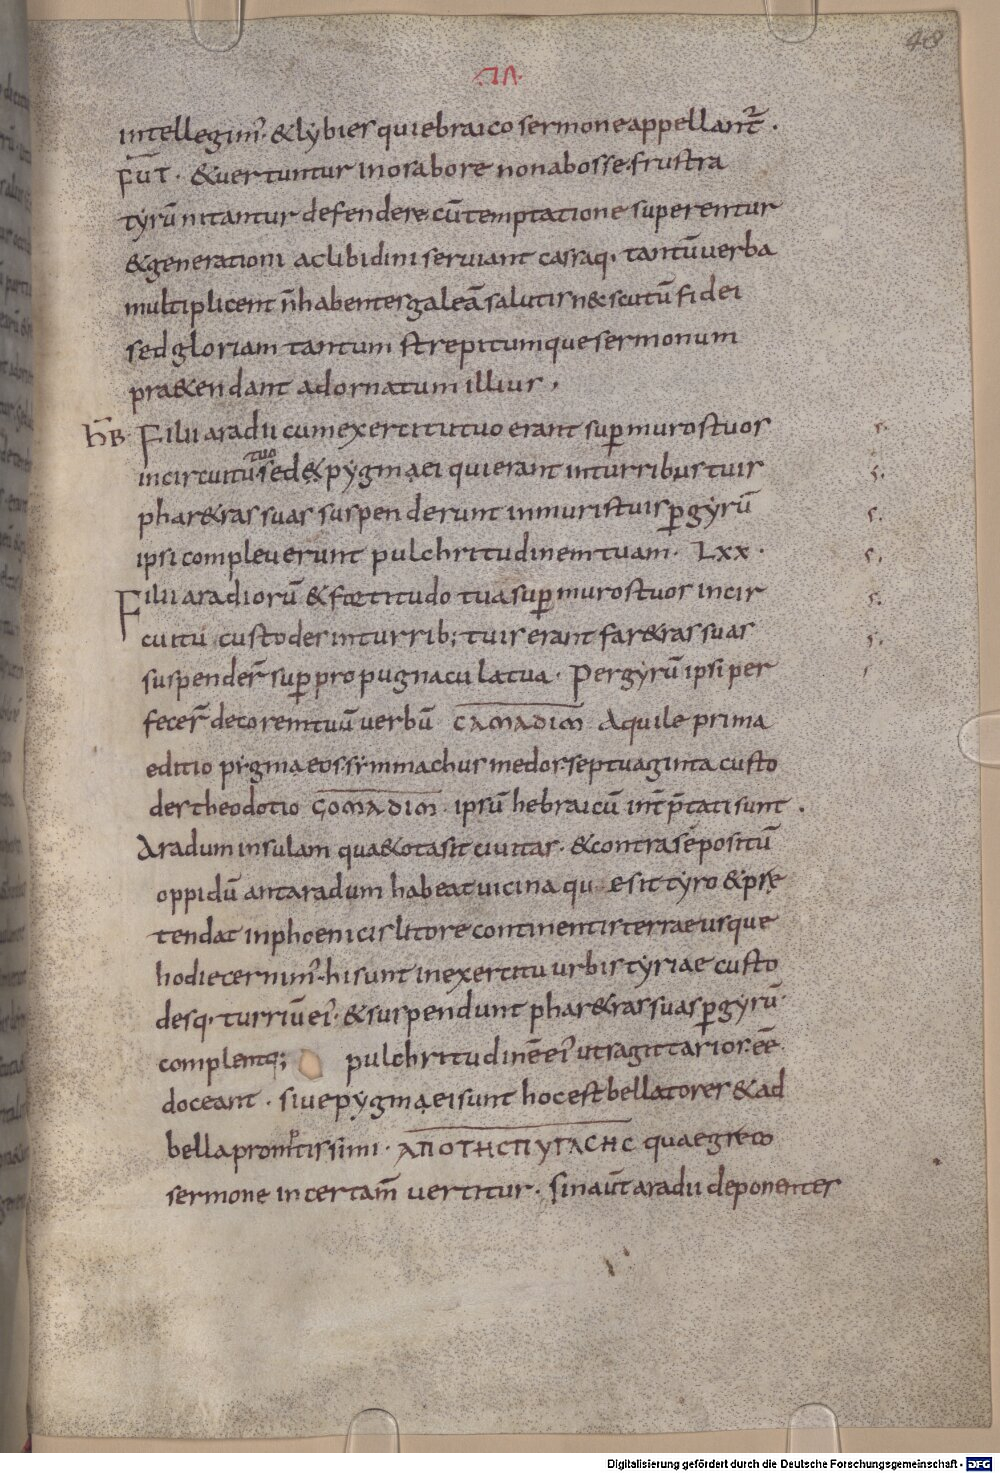 48
.VI.
intellegim'. & lybies qui ebraico sermone appellant̄.
FŪT. & uertuntur in os a bore non ab osse. frustra
tyrū nitantur defendere. cū temptatione superentur
& generationi ac libidini seruiant cassaq. tantū uerba
multiplicent n̄ habentes galeā salutis n& scutū fidei
sed gloriam tantum strepitumque sermonum
pra&endant adornatum illius.
H̄B Filii aradii cum exercitu tuo erant sup muros tuos
in circuitu tuo sed & pygmaei qui erant in turribus tuis
phar&ras suas suspenderunt in muris tuis p gyrū
ipsi compleuerunt pulchritudinem tuam. Lxx.
Filii aradiorū & fortitudo tua sup muros tuos in cir
cuitu custodes in turrib; tuis erant far&ras suas
suspender̄ sup propugnacula tua. Per gyrū ipsi per
fecer̄ decorem tuū uerbū GAMADIM Aquile prima
editio pygmaeos symmachus medos septuaginta custo
des theodotio GOMADIM. ipsū hebraicū int̄ p̄tati sunt.
Aradum insulam qua& ota sit ciuitas. & contra se positū
oppidū antaradum habeat uicina qu e sit tyro & prę
tendat in phoenicis litore continentis terrae usque
hodie cernim'. hi sunt in exercitu urbis tyriae custo
desq. turriū ei'. & suspendunt phar&ras suas p gyrū
complentq; pulchritudinē ei' ut sagittarios. eē
doceant. siue pygmaei sunt hoc est bellatores & ad
bella promtissimi. ΑΠΟΤΗСΠΥΓΛСΗС quae greco
sermone in certam̄ uertitur. sin aūt aradii deponentes
Digitalisierung gefördert durch die Deutsche Forschungsgemeinschaft - DFG